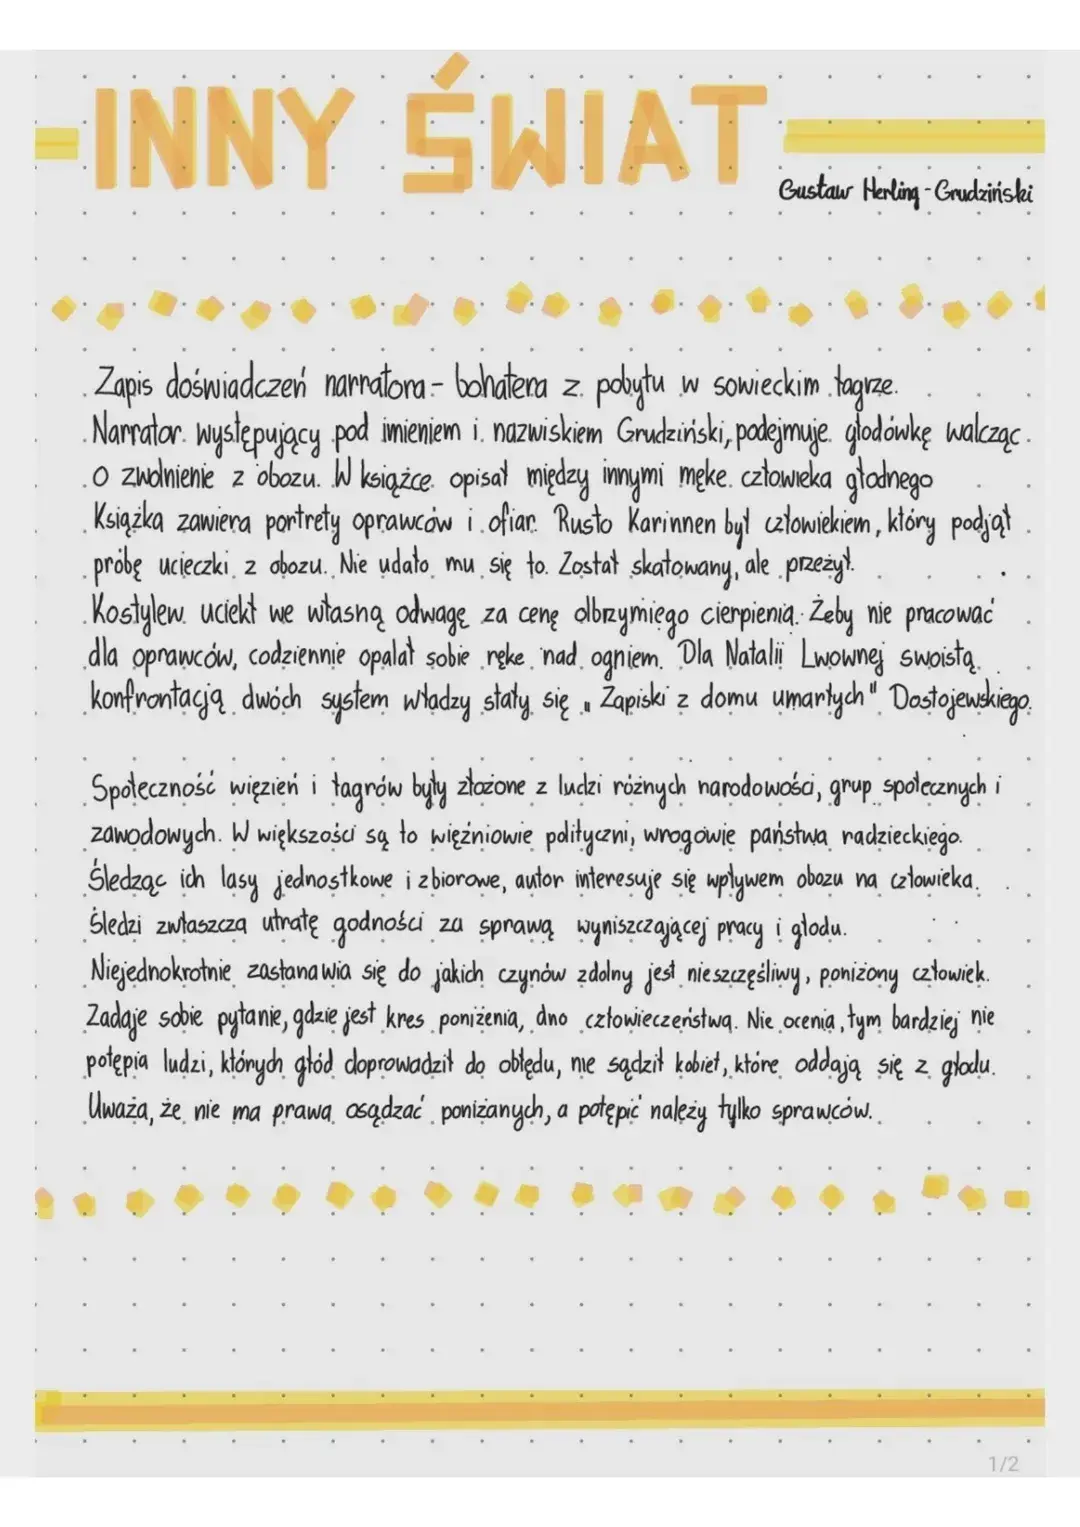 INNY ŚWIAT
Gustaw Herling-Grudziński
Zapis doświadczeń narratora - bohatera z pobytu w sowieckim łagrze.
Narrator występujący pod imieniem i nazwiskiem Grudziński, podejmuje głodówkę walcząc
o zwolnienie z obozu. W książce opisał między innymi męke człowieka głodnego
Książka zawiera portrety oprawców i ofiar. Rusto Karinnen był człowiekiem, który podjął
próbę ucieczki z obozu. Nie udało mu się to. Został skatowany, ale przeżył.
Kostylew uciekł we własną odwagę za cenę olbrzymiego cierpienia. Żeby nie pracować
dla oprawców, codziennie opalał sobie ręke nad ogniem. Dla Natalii Lwownej swoistą
konfrontacją dwóch system władzy stały się „Zapiski z domu umarłych" Dostojewskiego.
Społeczność więzień i łagrów były złożone z ludzi różnych narodowości, grup społecznych i
zawodowych. W większości są to więźniowie polityczni, wrogowie państwa radzieckiego.
Śledząc ich lasy jednostkowe i zbiorowe, autor interesuje się wpływem obozu na człowieka.
Śledzi zwłaszcza utratę godności za sprawą wyniszczającej pracy i głodu.
Niejednokrotnie zastanawia się do jakich czynów zdolny jest nieszczęśliwy, poniżony człowiek.
Zadaje sobie pytanie, gdzie jest kres poniżenia, dno człowieczeństwa. Nie ocenia, tym bardziej nie
potępia ludzi, których głód doprowadził do obłędu, nie sądził kobiet, które oddają się z głodu.
Uważa, że nie ma prawa osądzać poniżanych, a potępić należy tylko sprawców.
1/2